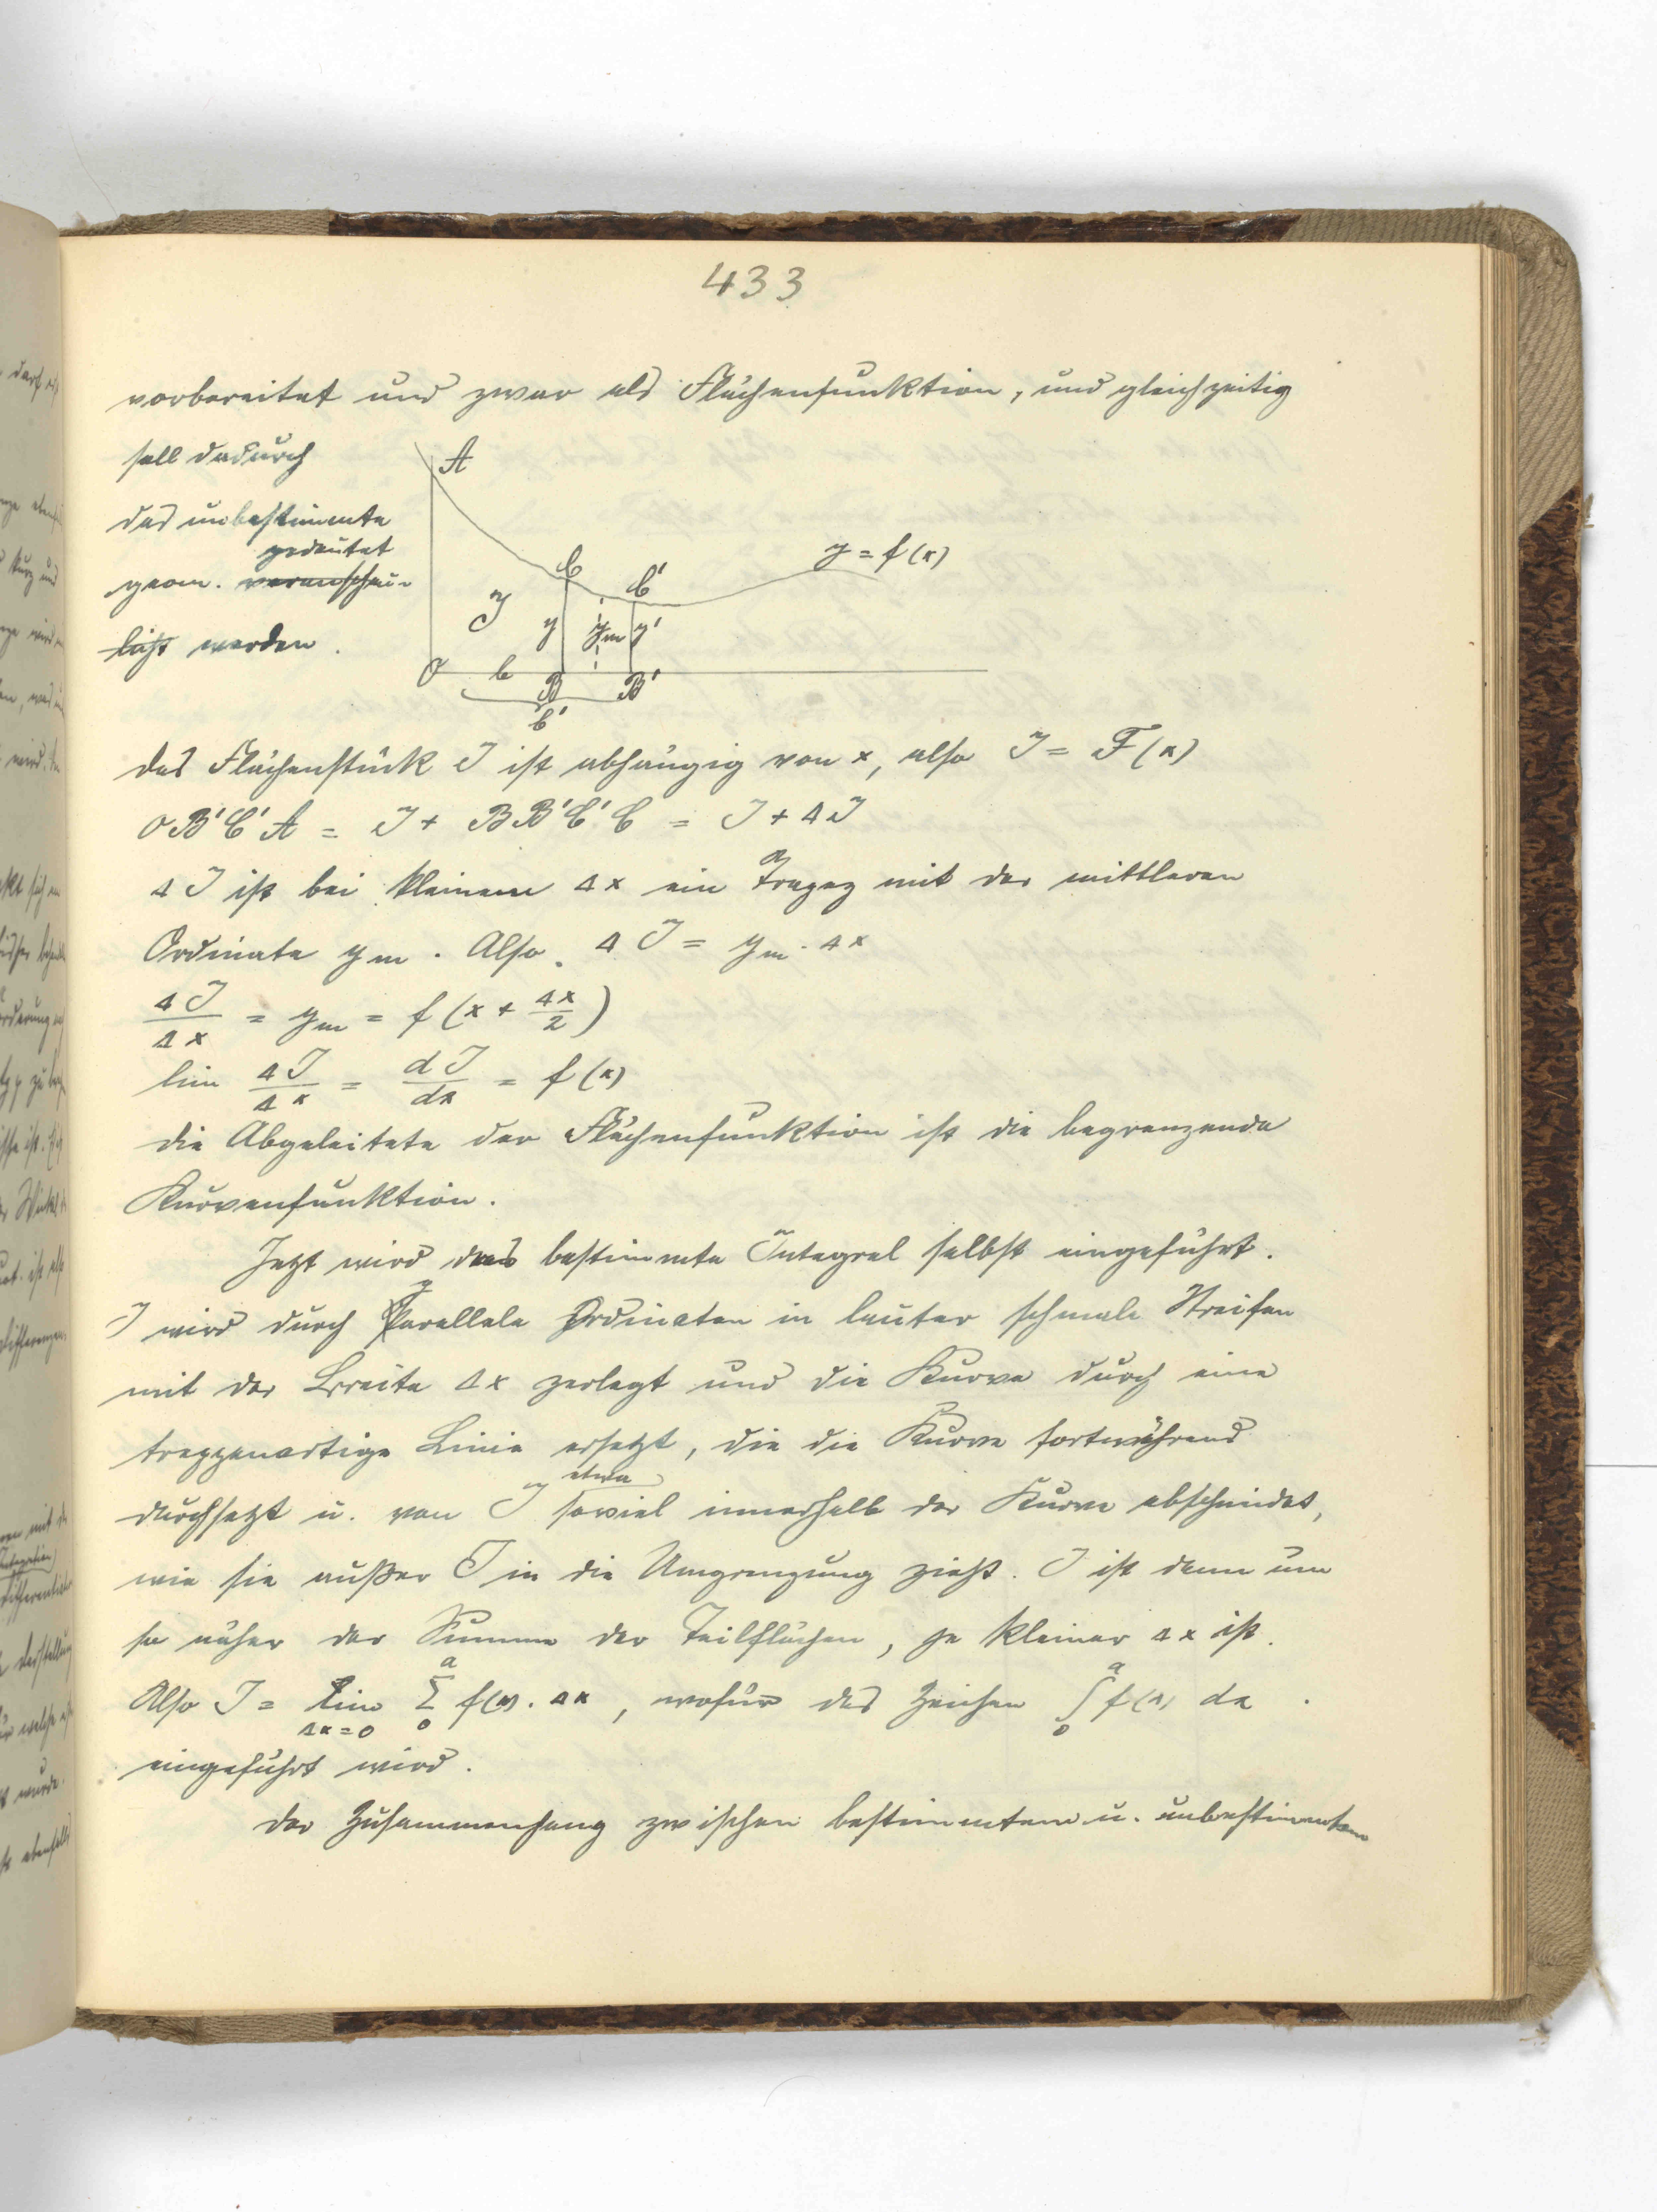 433
vorbereitet und zwar als Flächenfunktion, und gleichzeitig
soll dadurch
das unbestimmte
gedeutet
geom. veranschau-
licht werden.
A
C
C'
y = f(x)
J
y
ym
y'
O
b
B
B'
b'
das Flächenstück J ist abhängig von x, also J = F(x)
OB'C'A = J + BB'C'C = J + ΔJ
ΔJ ist bei kleinem Δx ein Trapez mit der mittleren
Ordinate ym. Also ΔJ = ym · Δx
ΔJ/Δx = ym = f(x + Δx/2)
lim ΔJ/Δx = dJ/dx = f(x)
die Abgeleitete der Flächenfunktion ist die begrenzende
Kurvenfunktion.
Jetzt wird das bestimmte Integral selbst eingeführt.
J wird durch Parallele Ordinaten in lauter schmale Streifen
mit der Breite Δx zerlegt und die Kurve durch eine
treppenartige Linie ersetzt, die die Kurve fortwährend
etwa
durchsetzt u. von J soviel innerhalb der Kurve abschneidet,
wie sie außer J in die Umgrenzung zieht. J ist dann um
so näher der Summe der Teilflächen, je kleiner Δx ist.
Also J = lim Δx=0 Σ 0 a f(x) · Δx, wofür das Zeichen ∫ 0 a f(x) dx.
eingeführt wird.
der Zusammenhang zwischen bestimmtem u. unbestimmtem